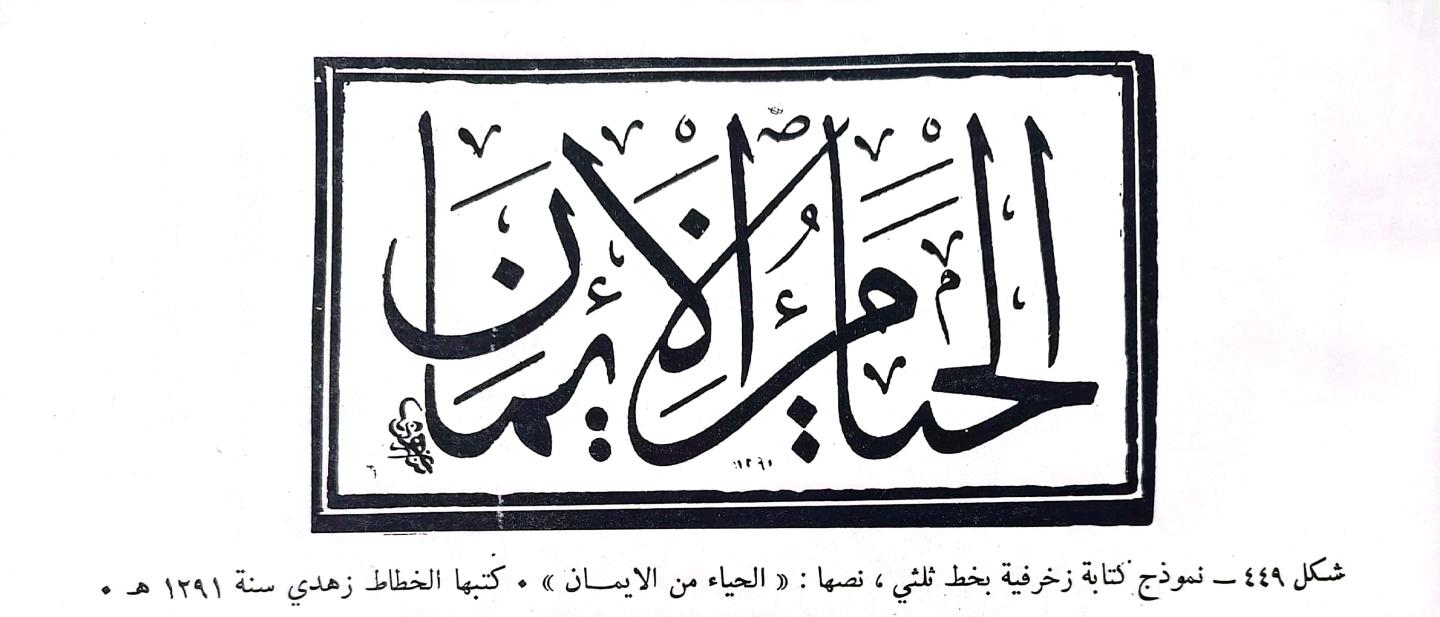 الحياء من الايمان
١٢٩١
شكل ٤٤٩ – نموذج كتابة زخرفية بخط ثلثي ، نصها : « الحياء من الايمـــان » ٠ كتبها الخطاط زهدي سنة ١٢٩١ هـ ٠